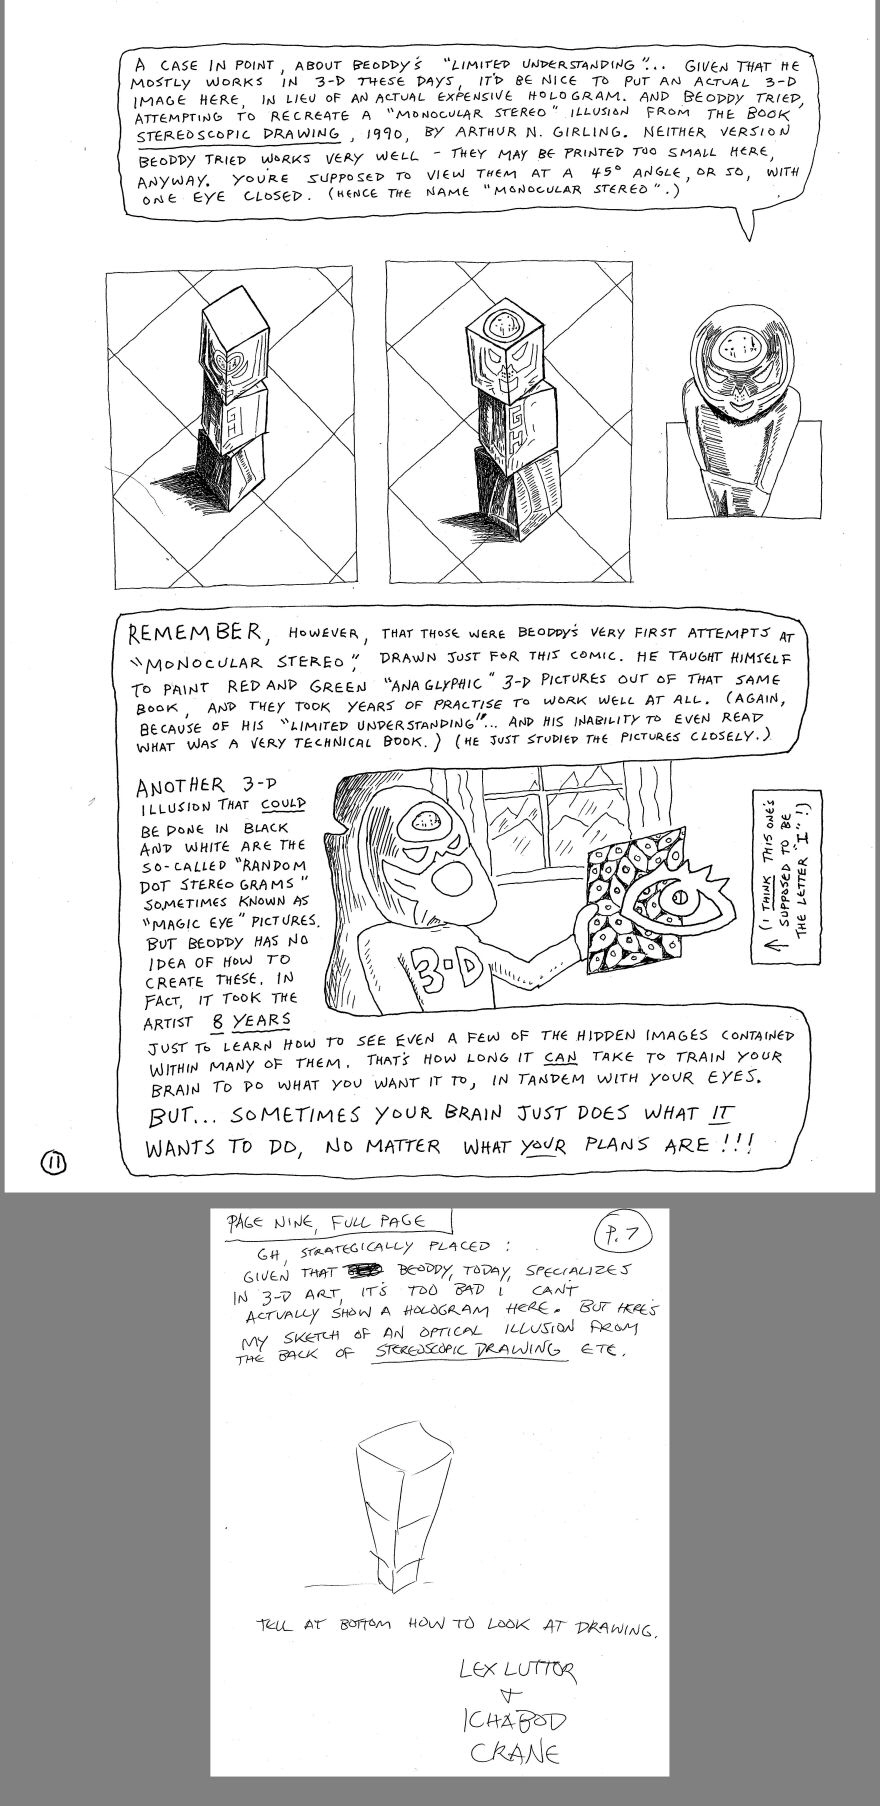 A CASE IN POINT, ABOUT BEODDY'S "LIMITED UNDERSTANDING"... GIVEN THAT HE
MOSTLY WORKS IN 3-D THESE DAYS, IT'D BE NICE TO PUT AN ACTUAL 3-D
IMAGE HERE, IN LIEU OF AN ACTUAL EXPENSIVE HOLOGRAM. AND BEODDY TRIED,
ATTEMPTING TO RECREATE A "MONOCULAR STEREO" ILLUSION FROM THE BOOK
STEREOSCOPIC DRAWING, 1990, BY ARTHUR N. GIRLING. NEITHER VERSION
BEODDY TRIED WORKS VERY WELL - THEY MAY BE PRINTED TOO SMALL HERE,
ANYWAY. YOU'RE SUPPOSED TO VIEW THEM AT A 45° ANGLE, OR SO, WITH
ONE EYE CLOSED. (HENCE THE NAME "MONOCULAR STEREO".)
GH
GH
REMEMBER, HOWEVER, THAT THOSE WERE BEODDY'S VERY FIRST ATTEMPTS AT
"MONOCULAR STEREO", DRAWN JUST FOR THIS COMIC. HE TAUGHT HIMSELF
TO PAINT RED AND GREEN "ANAGLYPHIC" 3-D PICTURES OUT OF THAT SAME
BOOK, AND THEY TOOK YEARS OF PRACTISE TO WORK WELL AT ALL. (AGAIN,
BECAUSE OF HIS "LIMITED UNDERSTANDING"... AND HIS INABILITY TO EVEN READ
WHAT WAS A VERY TECHNICAL BOOK.) (HE JUST STUDIED THE PICTURES CLOSELY.)
ANOTHER 3-D
ILLUSION THAT COULD
BE DONE IN BLACK
AND WHITE ARE THE
SO-CALLED "RANDOM
DOT STEREOGRAMS"
SOMETIMES KNOWN AS
"MAGIC EYE" PICTURES.
BUT BEODDY HAS NO
IDEA OF HOW TO
CREATE THESE. IN
FACT, IT TOOK THE
ARTIST 8 YEARS
JUST TO LEARN HOW TO SEE EVEN A FEW OF THE HIDDEN IMAGES CONTAINED
WITHIN MANY OF THEM. THAT'S HOW LONG IT CAN TAKE TO TRAIN YOUR
BRAIN TO DO WHAT YOU WANT IT TO, IN TANDEM WITH YOUR EYES.
BUT... SOMETIMES YOUR BRAIN JUST DOES WHAT IT
WANTS TO DO, NO MATTER WHAT YOUR PLANS ARE!!!
3-D
(I THINK THIS ONE'S
SUPPOSED TO BE
THE LETTER "I"!)
11
PAGE NINE, FULL PAGE
P. 7
GH, STRATEGICALLY PLACED:
GIVEN THAT BEODDY, TODAY, SPECIALIZES
IN 3-D ART, IT'S TOO BAD I CAN'T
ACTUALLY SHOW A HOLOGRAM HERE. BUT HERE'S
MY SKETCH OF AN OPTICAL ILLUSION FROM
THE BACK OF STEREOSCOPIC DRAWING ETC.
TELL AT BOTTOM HOW TO LOOK AT DRAWING.
LEX LUTTOR
+
ICHABOD
CRANE